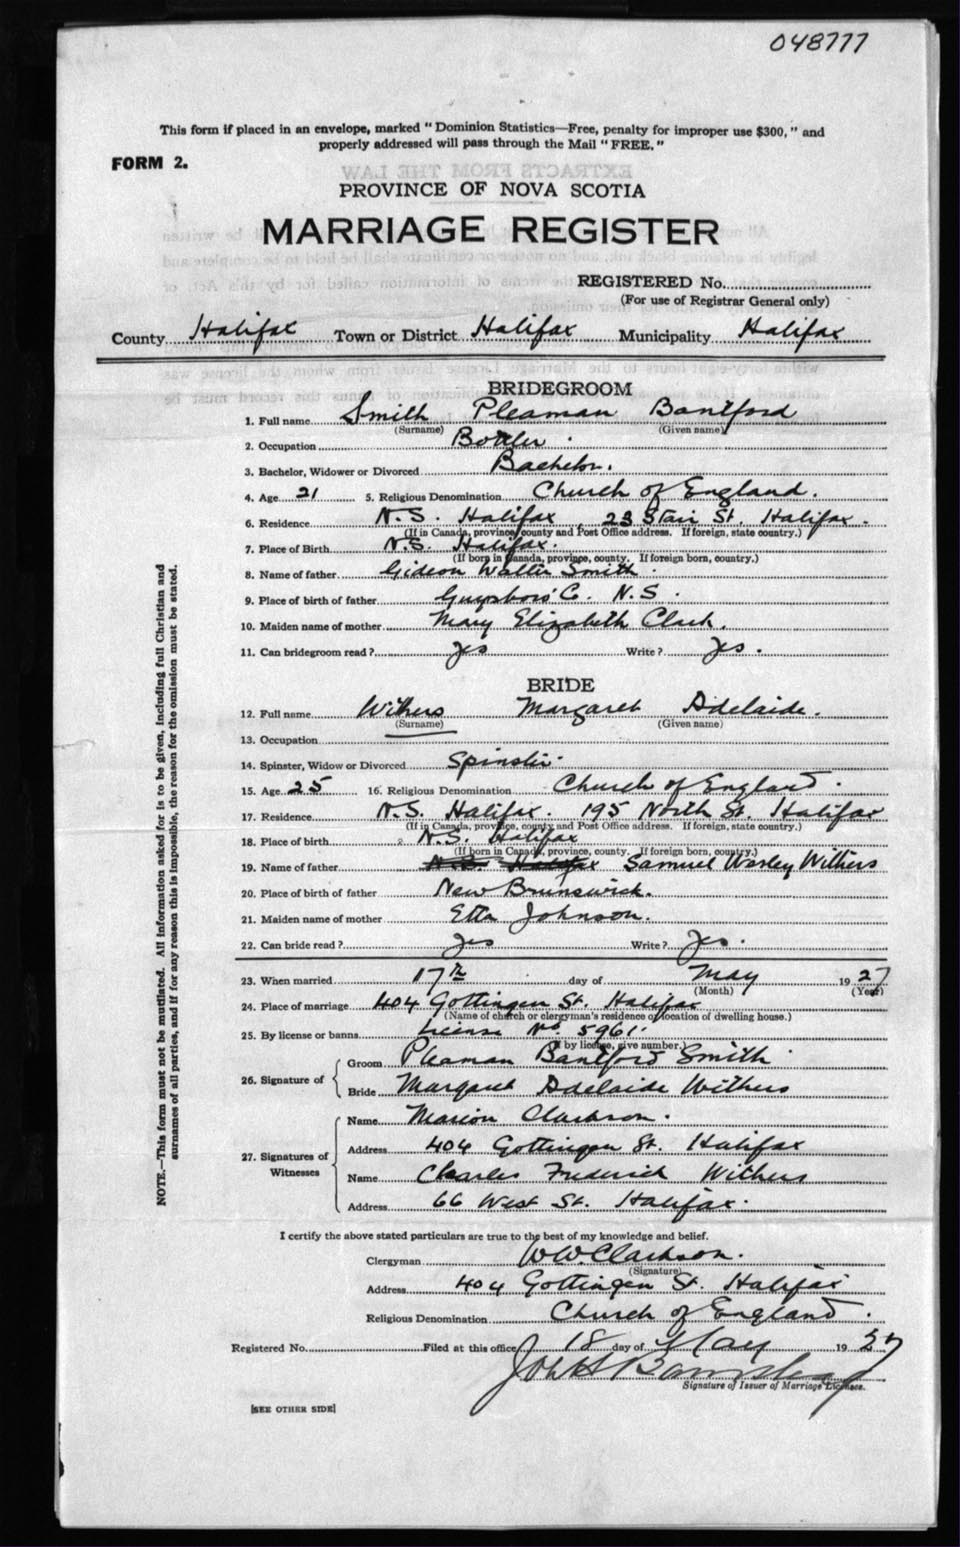 048777
This form if placed in an envelope, marked "Dominion Statistics—Free, penalty for improper use $300," and
properly addressed will pass through the Mail "FREE."
FORM 2.
EXTRACTS FROM THE LAW
PROVINCE OF NOVA SCOTIA
MARRIAGE REGISTER
REGISTERED No.
(For use of Registrar General only)
County Halifax Town or District Halifax Municipality Halifax
BRIDEGROOM
1. Full name Smith Pleaman Bantford
(Surname) (Given name)
2. Occupation Bottler.
3. Bachelor, Widower or Divorced Bachelor.
4. Age 21 5. Religious Denomination Church of England.
6. Residence N.S. Halifax 23 Stair St. Halifax.
(If in Canada, province, county and Post Office address. If foreign, state country.)
7. Place of Birth N.S. Halifax.
(If born in Canada, province, county. If foreign born, country.)
8. Name of father Gideon Walter Smith.
9. Place of birth of father Guysboro' Co. N.S.
10. Maiden name of mother Mary Elizabeth Clark.
11. Can bridegroom read? Yes Write? Yes.
BRIDE
12. Full name Withers Margaret Adelaide.
(Surname) (Given name)
13. Occupation
14. Spinster, Widow or Divorced Spinster.
15. Age 25 16. Religious Denomination Church of England.
17. Residence N.S. Halifax. 195 North St. Halifax
(If in Canada, province, county and Post Office address. If foreign, state country.)
18. Place of birth N.S. Halifax
(If born in Canada, province, county. If foreign born, country.)
19. Name of father N.S. Halifax Samuel Worley Withers
20. Place of birth of father New Brunswick.
21. Maiden name of mother Etta Johnson.
22. Can bride read? Yes Write? Yes.
23. When married 17th day of May 1927
(Month) (Year)
24. Place of marriage 404 Gottingen St. Halifax
(Name of church or clergyman's residence or location of dwelling house.)
25. By license or banns License No. 5961.
(If by license, give number.)
26. Signature of Groom Pleaman Bantford Smith
Bride Margaret Adelaide Withers
27. Signatures of Witnesses Name Marion Clarkson.
Address 404 Gottingen St. Halifax
Name Charles Frederick Withers
Address 66 West St. Halifax.
I certify the above stated particulars are true to the best of my knowledge and belief.
Clergyman W.W. Clarkson.
(Signature)
Address 404 Gottingen St. Halifax
Religious Denomination Church of England.
Registered No. Filed at this office 18 day of May 1927
Signature of Issuer of Marriage Licenses.
[SEE OTHER SIDE]
NOTE.—This form must not be mutilated. All information asked for is to be given, including full Christian and
surnames of all parties, and if for any reason this is impossible, the reason for the omission must be stated.